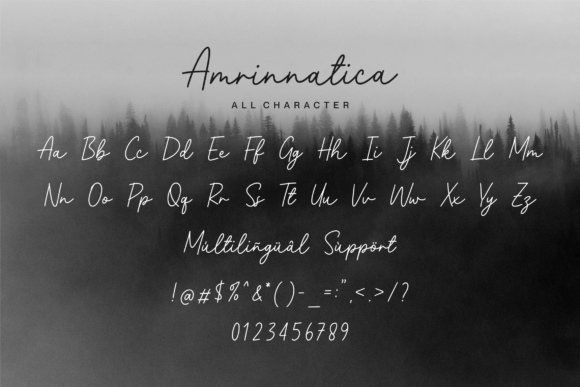 Amrinnatica
ALL CHARACTER
Aa Bb Cc Dd Ee Ff Gg Hh Ii Jj Kk Ll Mm
Nn Oo Pp Qq Rr Ss Tt Uu Vv Ww Xx Yy Zz
Múltiliñgüâl Sùppört
!@#$%^&*()-_=:",<.>/?
0123456789